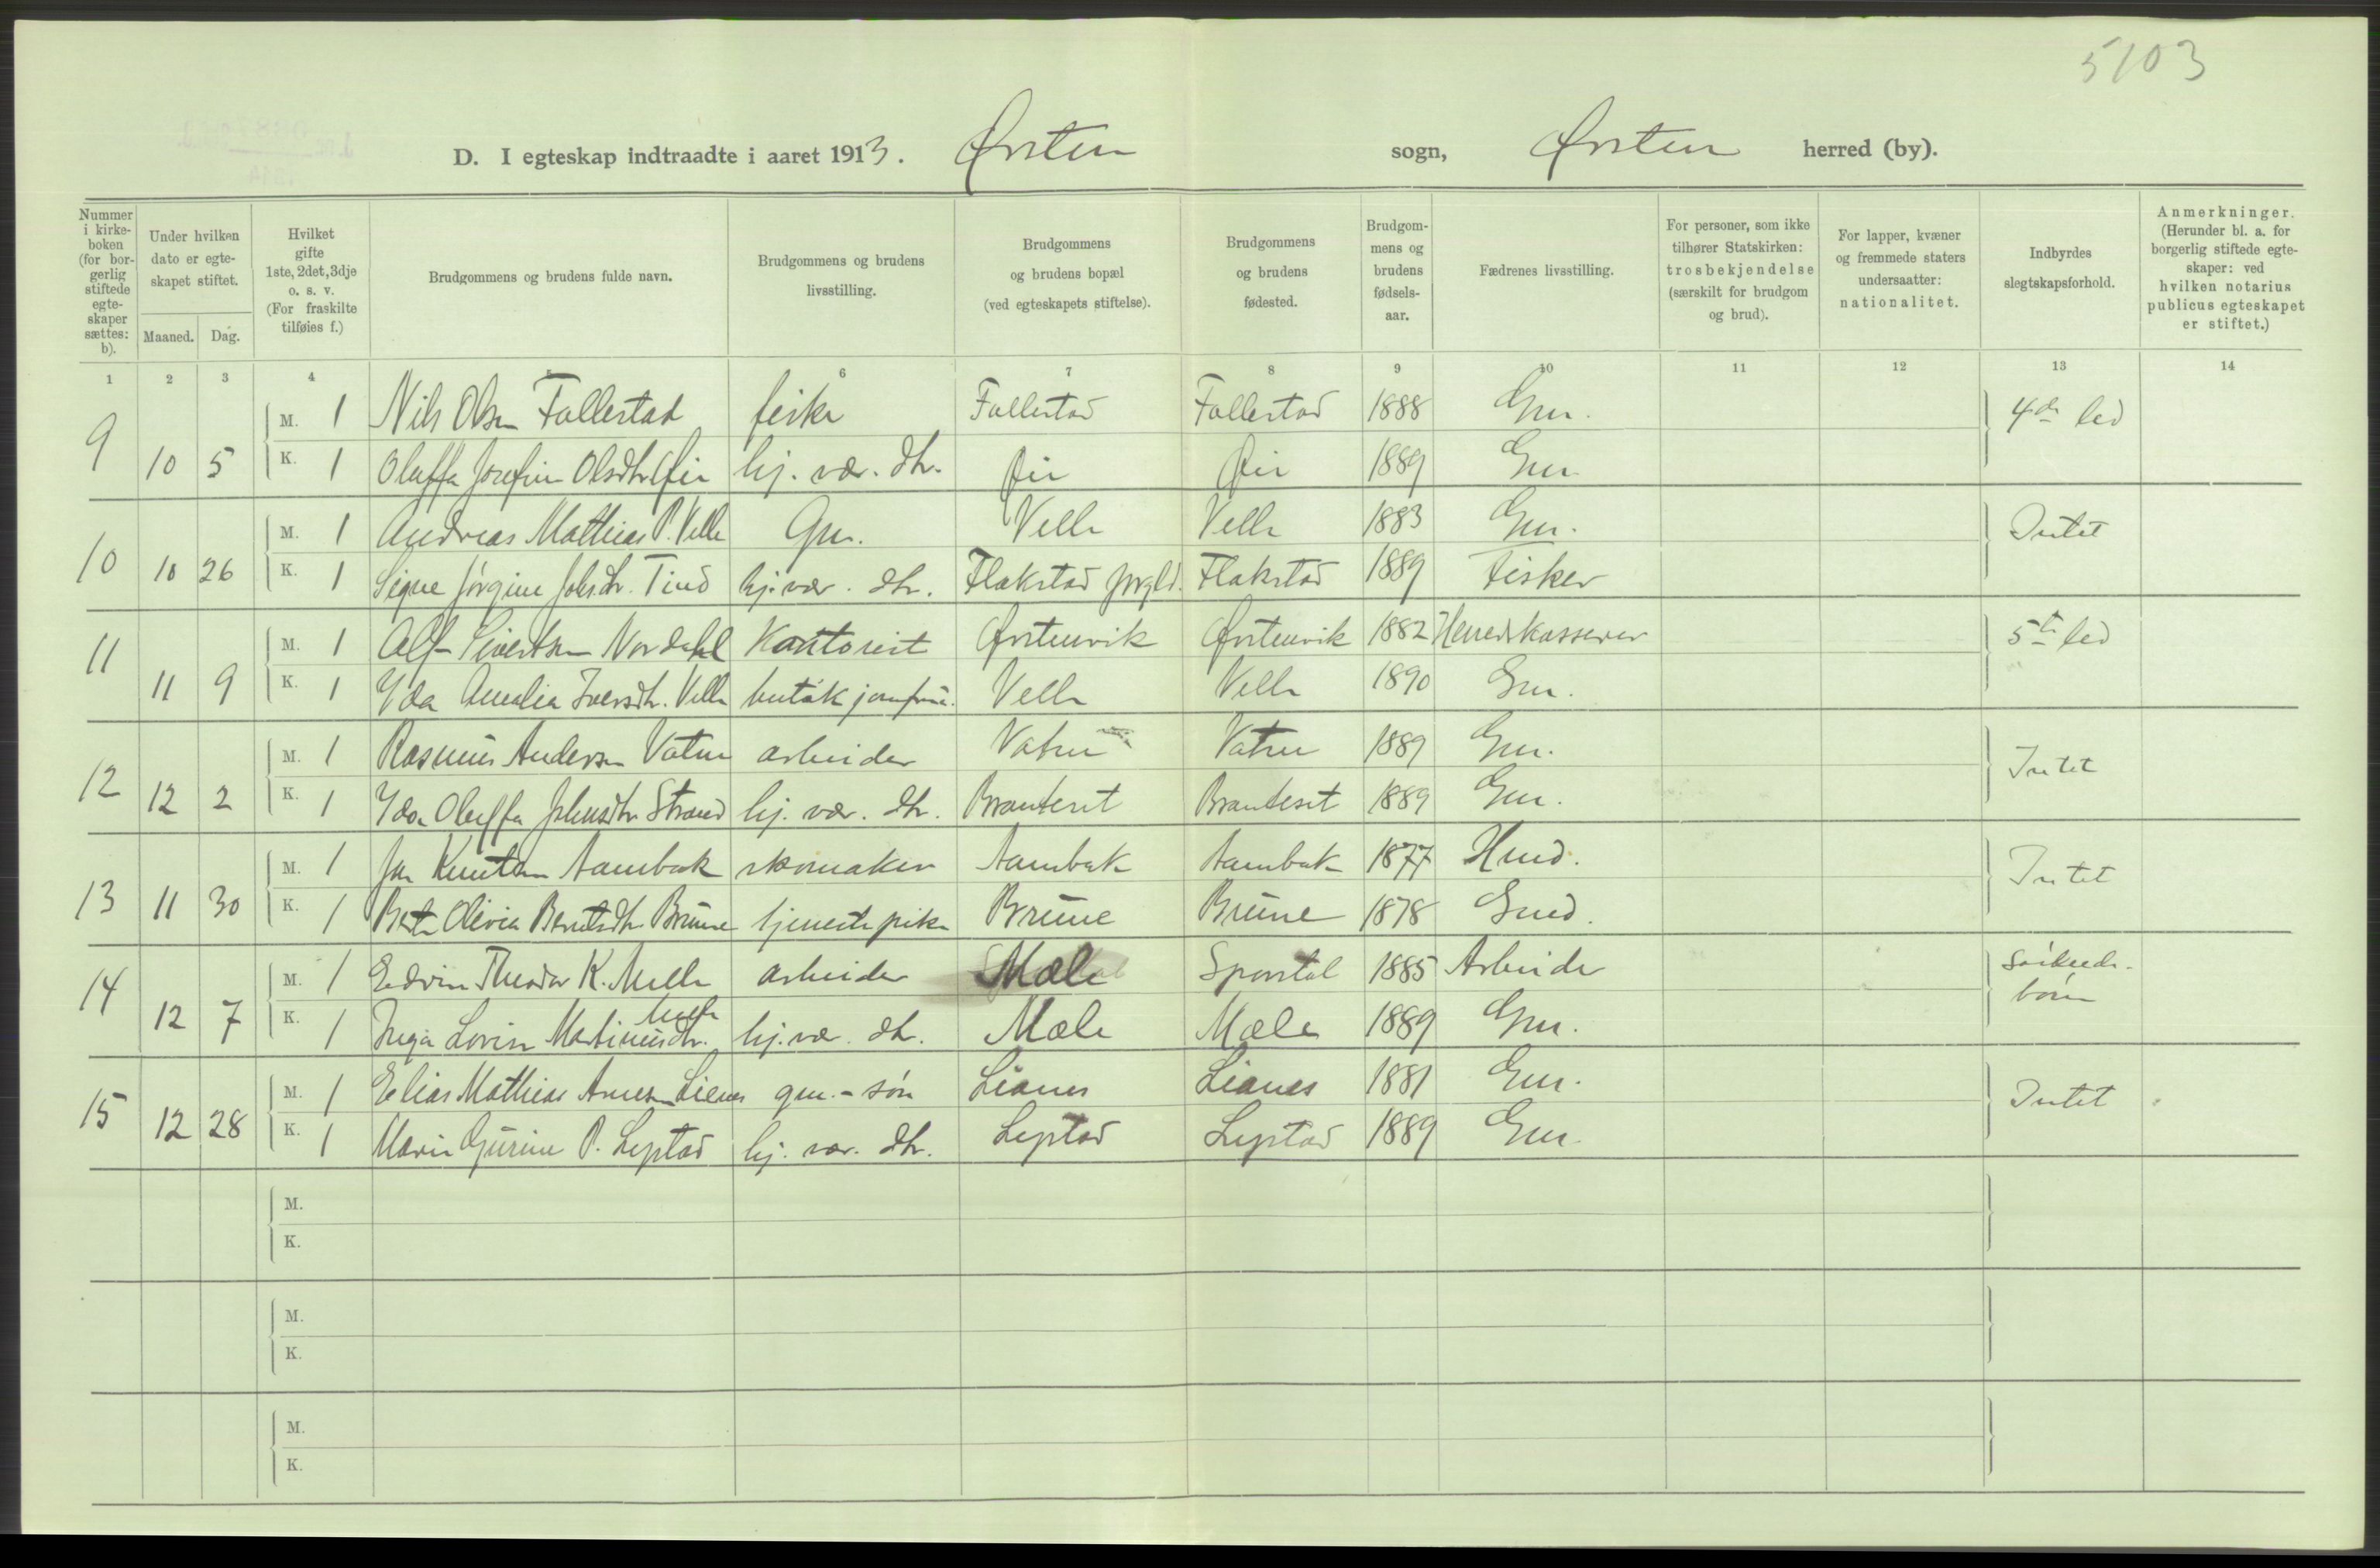 5103
D. I egteskap indtraadte i aaret 1913. Ørsten sogn, Ørsten herred (by).
Nummer i kirke-boken (for bor-gerlig stiftede egte-skaper sættes: b).
Under hvilken dato er egte-skapet stiftet.
Maaned. Dag.
Hvilket gifte 1ste, 2det, 3dje o. s. v. (For fraskilte tilføies f.)
Brudgommens og brudens fulde navn.
Brudgommens og brudens livsstilling.
Brudgommens og brudens bopæl (ved egteskapets stiftelse).
Brudgommens og brudens fødested.
Brudgom-mens og brudens fødsels-aar.
Fædrenes livsstilling.
For personer, som ikke tilhører Statskirken: trosbekjendelse (særskilt for brudgom og brud).
For lapper, kvæner og fremmede staters undersaatter: nationalitet.
Indbyrdes slegtskapsforhold.
Anmerkninger. (Herunder bl. a. for borgerlig stiftede egte-skaper: ved hvilken notarius publicus egteskapet er stiftet.)
1 2 3 4 5 6 7 8 9 10 11 12 13 14
9 10 5 M. 1 Nils Olsen Follestad fisker Follestad Follestad 1888 Gm. 4de led
K. 1 Oluffa Josefine Olsdtr Øie hj. vær. dtr. Øie Øie 1889 Gm
10 10 26 M. 1 Andreas Mathias P. Velle Gm. Velle Velle 1883 Gm. Intet
K. 1 Signe Jørgine Johsdtr. Tind hj. vær. dtr. Flakstad Flakstad 1889 Fisker
11 11 9 M. 1 Alf Sivertsen Nordahl Kontorist Ørstenvik Ørstenvik 1882 Herredskasserer 5te led
K. 1 Ida Amalia Iversdtr. Velle butikjomfru. Velle Velle 1890 Gm.
12 12 2 M. 1 Rasmus Andersen Vatne arbeider Vatne Vatne 1889 Gm. Intet
K. 1 Ida Oluffa Johnsdtr Strand hj. vær. dtr. Brauteset Brauteset 1889 Gm.
13 11 30 M. 1 Knutsen Aambak skomaker Aambak Aambak 1877 Hmd. Intet
K. 1 Olivia Berntsdtr Brune tjenestepike Brune Brune 1878 Gmd.
14 12 7 M. 1 Edvin Theodor K. Melle arbeider Mæle Sporstøl 1885 Arbeider Søskende-børn
K. 1 Inga Lovise Martinusdtr. Melle hj. vær. dtr. Mæle Mæle 1889 Gm.
15 12 28 M. 1 Elias Mathias Arnesen Lianes gm.-søn Lianes Lianes 1881 Gm. Intet
K. 1 Marie Gurine P. Leptad hj. vær. dtr. Leptad Leptad 1889 Gm.
M.
K.
M.
K.
M.
K.